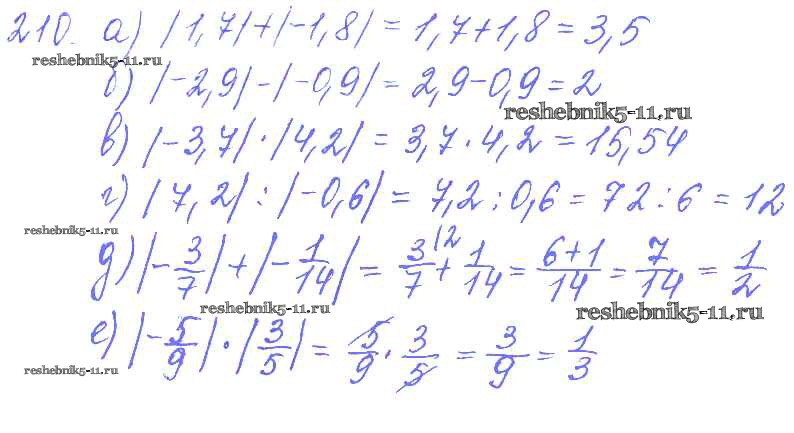 210. а) |1,7|+|-1,8| = 1,7+1,8 = 3,5
reshebnik5-11.ru
б) |-2,9|-|-0,9| = 2,9-0,9=2
reshebnik5-11.ru
в) |-3,7|·|4,2| = 3,7·4,2 = 15,54
г) |7,2| : |-0,6| = 7,2:0,6=72:6=12
reshebnik5-11.ru
д) |-3/7|+|-1/14| = 3/7|2 + 1/14 = 6+1/14 = 7/14 = 1/2
reshebnik5-11.ru
reshebnik5-11.ru
е) |-5/9|·|3/5| = 5/9·3/5 = 3/9 = 1/3
reshebnik5-11.ru